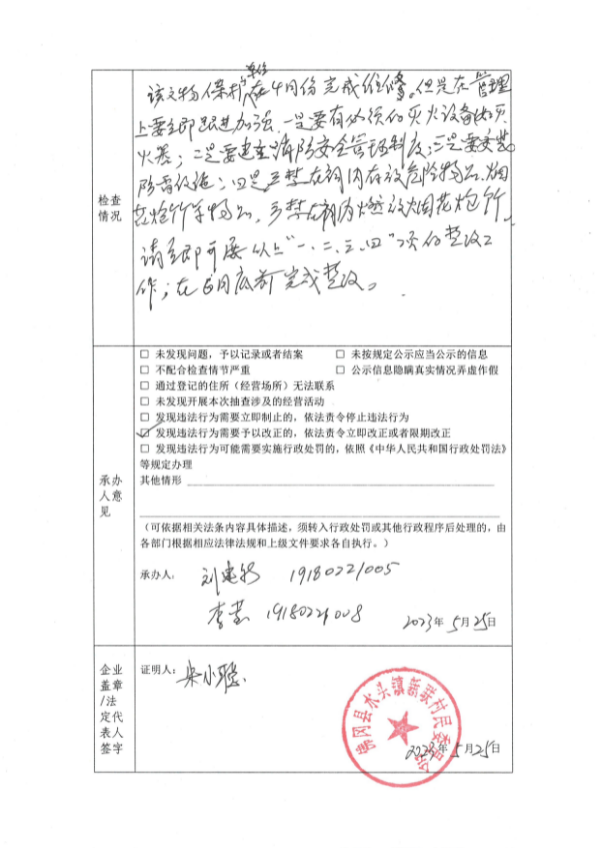 检查情况
该文物保护单位在4月份完成维修。但是在管理
上要立即跟进加强,一是要有必须的灭火设备如灭
火器;二是要建立消防安全管理制度;三是要安装
防雷设施;四是严禁在祠内存放危险物品、烟
花炮竹等物品,严禁在祠内燃放烟花炮竹。
请立即开展以上“一、二、三、四”项的整改工
作;在6月底前完成整改。
承办人意见
☐ 未发现问题,予以记录或者结案 ☐ 未按规定公示应当公示的信息
☐ 不配合检查情节严重 ☐ 公示信息隐瞒真实情况弄虚作假
☐ 通过登记的住所(经营场所)无法联系
☐ 未发现开展本次抽查涉及的经营活动
☐ 发现违法行为需要立即制止的,依法责令停止违法行为
☑ 发现违法行为需要予以改正的,依法责令立即改正或者限期改正
☐ 发现违法行为可能需要实施行政处罚的,依照《中华人民共和国行政处罚法》
等规定办理
其他情形
(可依据相关法条内容具体描述,须转入行政处罚或其他行政程序后处理的,由
各部门根据相应法律法规和上级文件要求各自执行。)
承办人: 19180221005
19180221008
2023年5月25日
企业盖章/法定代表人签字
证明人:
佛冈县水头镇新联村民委员会
2023年5月25日